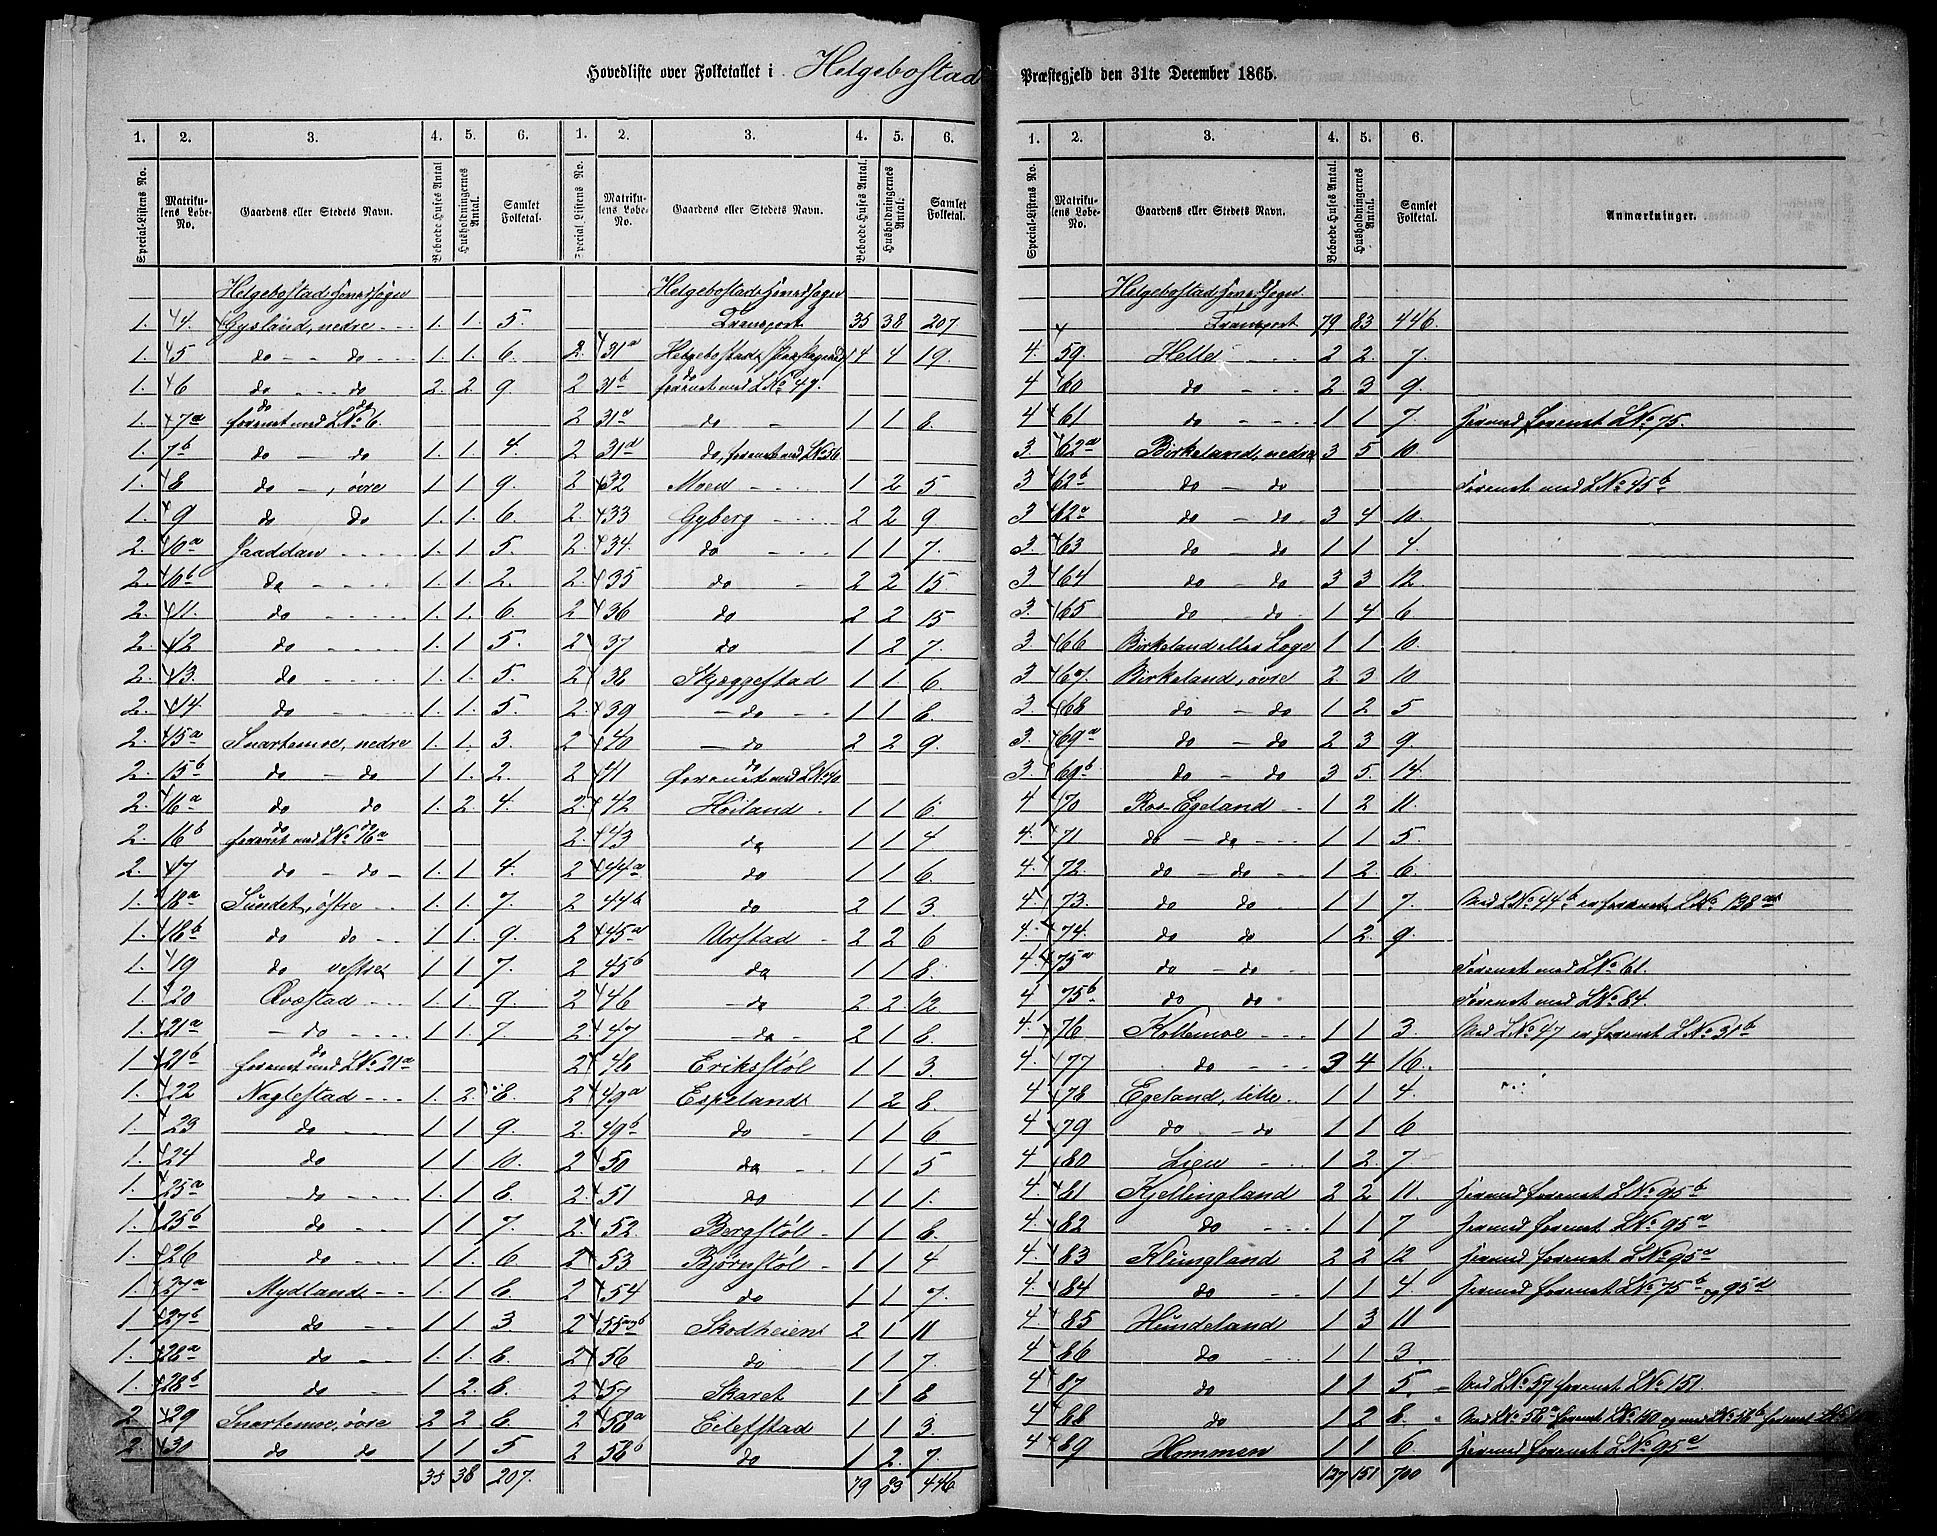 Hovedliste over Folketallet i Helgebostad Præstegjeld den 31te December 1865.
1. 2. 3. 4. 5. 6. 1. 2. 3. 4. 5. 6.
Special-Listens No. Matrikulens Løbe-No. Gaardens eller Stedets Navn. Beboede Huses Antal Husholdningernes Antal. Samlet Folketal. Special-Listens No. Matrikulens Løbe-No. Gaardens eller Stedets Navn. Beboede Huses Antal. Husholdningernes Antal. Samlet Folketal.
Helgebostads Hovedsogn
1. 4. Gysland, nedre 1. 1. 5.
1. 5 do do 1. 1. 6.
1. 6 do do 2. 2. 9.
1. 7a do do forenet med LNo 6.
1. 7b do do 1. 1. 4.
1. 8 do, øvre 1 1 9.
1. 9 do do 1. 1. 6.
2. 10a Jaaddan 1. 1. 5.
2. 10b do 1. 1. 2.
2. 11. do 1. 1. 6.
2. 12 do 1. 1. 5.
2. 13. do 1. 1. 5.
2. 14. do 1. 1. 5.
2. 15a Snartemoe, nedre 1. 1. 3.
2. 15b do do 1 1. 2.
2. 16a do do 1. 2. 4.
2. 16b do do forenet med LNo 16a
2. 17 do do 1. 1. 4.
1. 18a Sundet, østre 1. 1. 7.
1. 18b do do 1 1. 9.
1. 19 do vestre 1 1 7.
1. 20 Qvæstad 1. 1 9.
1. 21a do 1 1 7
1. 21b do forenet med LNo 21a
1. 22 Naglestad 1. 2. 8.
1. 23 do 1 1 9.
1. 24 do 1 1 10.
1. 25a do 1 1 8.
1. 25b do 1 1 7.
1. 26 do 1 1. 6
1. 27a Mydland 1 1 8.
1. 27b do 1 1 3.
1. 28a do 1. 1. 8.
1. 28b do 1 2. 8.
2 29 Snartemoe, øvre 2 2 8
2. 30 do do 1 1 5
35 38 207.
Helgebostads Hovedsogn
Transport 35 38 207
2. 31a Helgebostad, Præstegaard 4 4 19
2 31b do forenet med LNo 47.
2 31 do 1 1 8.
2 31d do, forenet med LNo 56
2 32 Moen 1 2 5
2. 33 Gyberg 2 2 9
2. 34. do 1 1 7.
2. 35 do 2 2 15.
2 36 do 2 2 15
2 37 do 1 2 7.
2 38 Skjeggestad 1 1 6.
2. 39 do 1 1 8.
2 40 do 2 2 9.
2 41 do forenet med LNo 40
2. 42 Høiland 1 1 6.
2. 43 do 1 1 4
2 44a do 1 1 6.
2 44b do 2 1 3.
2 45a Urstad 2 2 6
2 45b do 1 1 8.
2 46 do 2 2 12
2. 47 do 2 1 8.
2 48 Eriksstøl 1 1 3.
2 49a Espeland 1 2 8.
2. 49b do 1 1 6
2 50 do 1 1 5
2. 51 do 1 1 1.
2. 52. Bergstøl 1 1 8.
2 53 Bjørnstøl 1 1 4
2 54 do 1 1 7.
2 55 Skodheien 2 1 11
2 56 do 1 1 7.
2 57 Skaret 1 1 8
2 58a Eilefstad 1 1 3.
2 58b do 1 2. 7.
79 83 446
1. 2. 3. 4. 5. 6.
Special-Listens No. Matrikulens Løbe-No. Gaardens eller Stedets Navn. Beboede Huses Antal. Husholdningernes Antal. Samlet Folketal. Anmærkninger.
Helgebostads Hovedsogn.
Transport 79 83 446.
4. 59. Helle 2 2. 7.
4 60 do 2 3 9.
4 61 do 1 1 7. hermed forenet LNo 75.
3. 62a Birkeland, nedre 3 5 10.
3 62b do do Forenet med LNo 45b
3 62 do do 3 4 10.
3. 63 do do 1 1 4.
3 64 do do 3 3 12
3. 65 do do 1 4 6
3 66 Birkeland eller Loge 1 1 10.
3 67. Birkeland, øvre 2 3 10
3. 68 do do 1 2 5
3. 69a do do 2 3 9.
3. 69b do do 3 5. 14.
4 70 Ros-Egeland 1 2 11.
4. 71 do do 1 1 5.
4 72. do do 1 2 6.
4 73. do do 1 1 7. Med LNo 44b er forenet LNo 138
4. 74. do do 1 2. 9.
4. 75a do do Forenet med LNo 61.
4 75b do do Forenet med LNo 84.
4. 76 Kollemoe 1 1 3. Med LNo 47 er forenet LNo 31b
4. 77 do 3 4 16.
4 78 Egeland, lille 1 1 4
4 79 do do 1 1 6
4 80 Lien 1 2. 7.
4 81 Kjellingland 2 2 11. hermed forenet LNo 95b
4. 82 do 1 1 7 hermed forenet LNo 95a
4. 83 Klungland 2 2 12 hermed forenet LNo 95a
4. 84 do 1 1 4. hermed forenet LNo 75b og 95d
4. 85 Hundeland 1 3 11
4 86 do 1 1 3.
4 87 do 1 1 5. Med LNo 57 forenet LNo 151.
4 88 do 1 2 8. Med LNo 58a forenet LNo 150 og med LNo 58b forenet
4 89 Hommen 1 1 6. hermed forenet LNo 95a
127 151 700